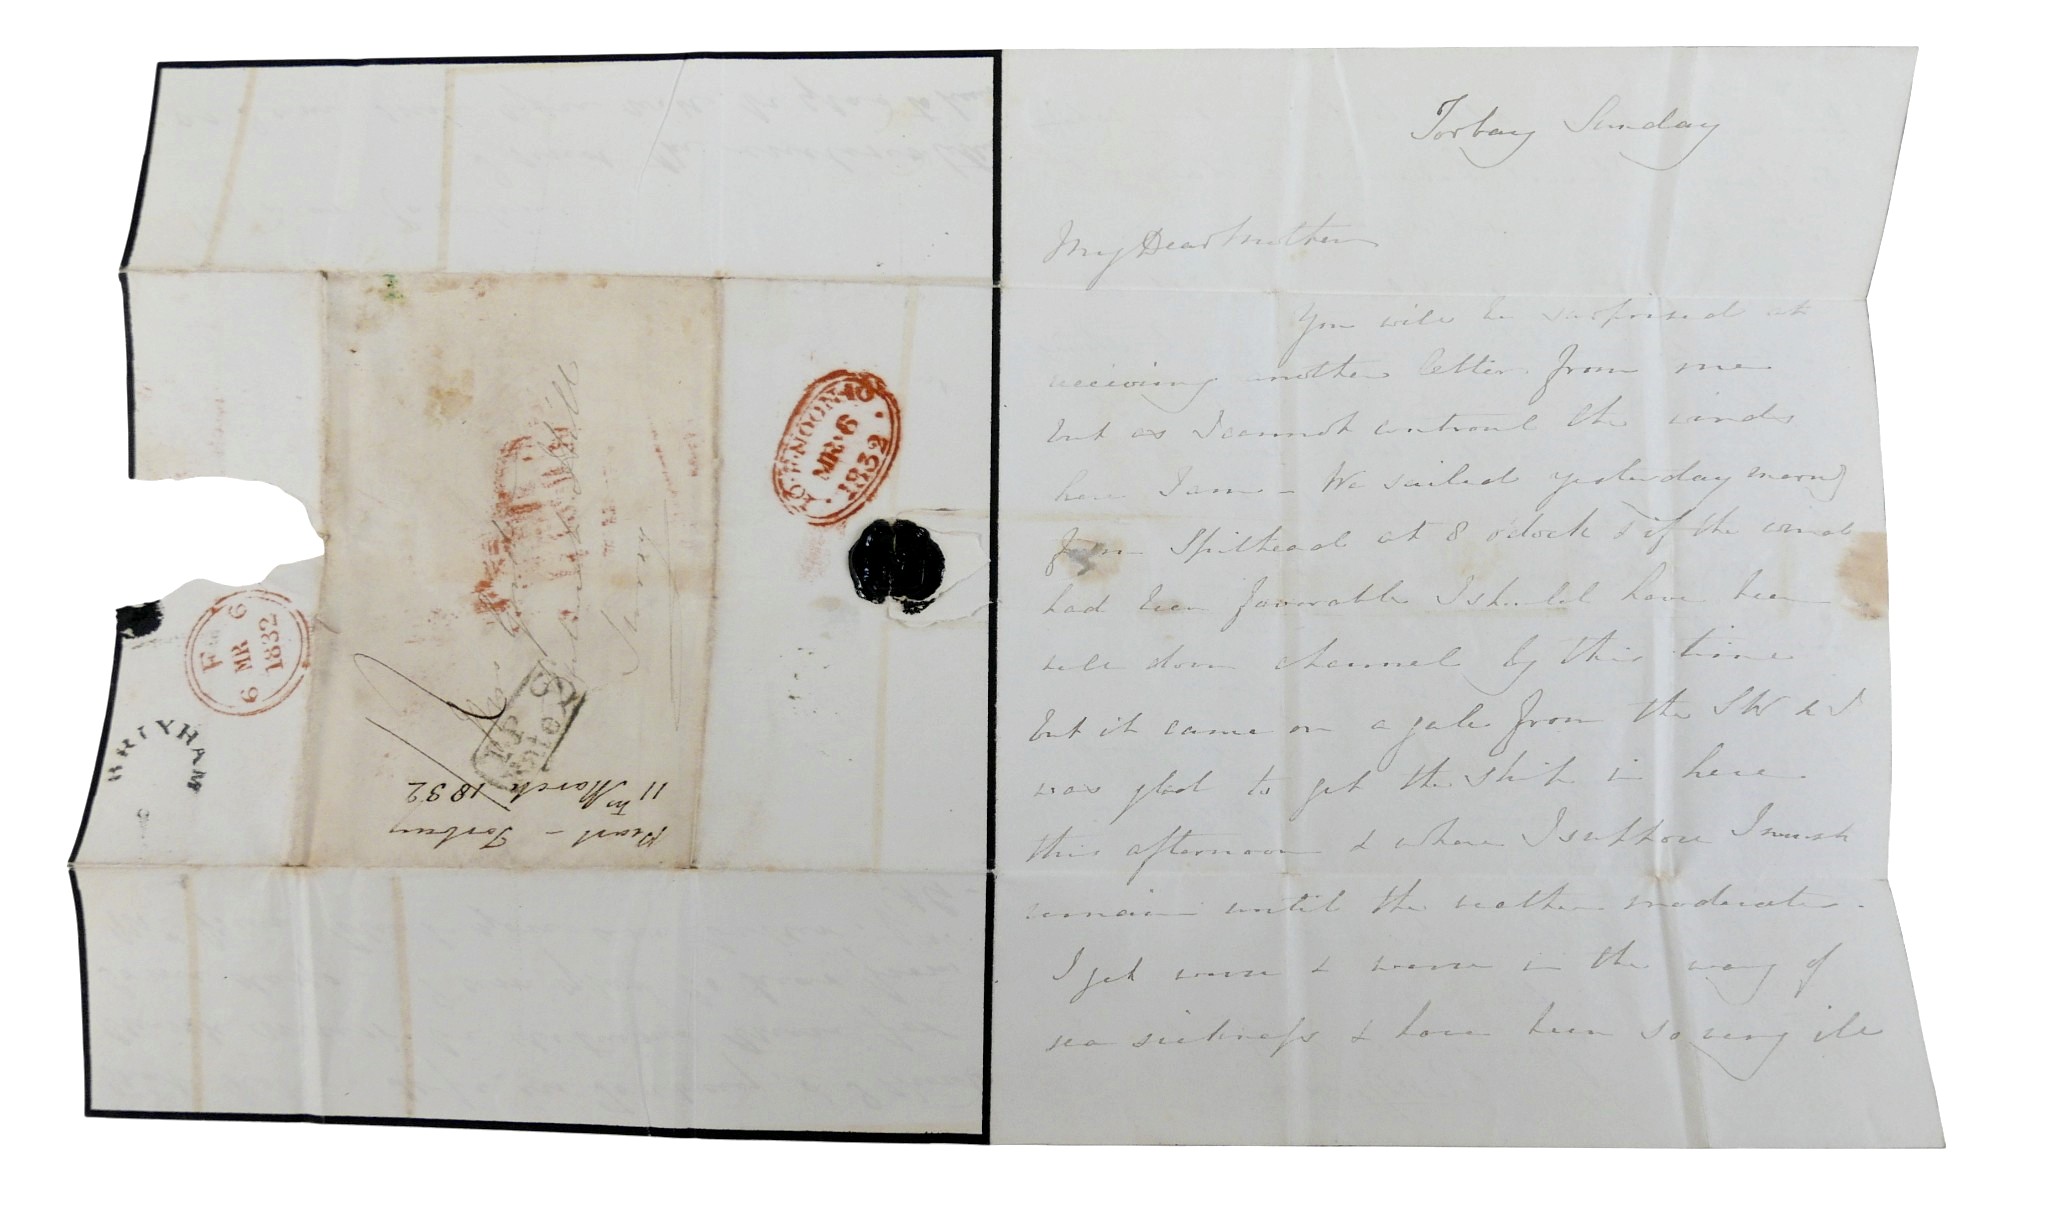 Torbay Sunday
My Dear Mother
You will be surprised at
receiving another letter from me
but as I cannot controul the winds
here I am - We sailed yesterday morng
from Spithead at 8 o'clock & if the wind
had been favorable I should have been
well down channel by this time
but it came on a gale from the SW & I
was glad to get the ship in here
this afternoon & where I suppose I must
remain until the weather moderates.
I get worse & worse in the way of
sea sickness & have been so very ill
10.F.NOON.10
MR.6
1832
F
6 MR 6
1832
BRIXHAM
T.P
Rate
Mrs
Hill
Surrey
Pearl - Torbay
11th March 1832